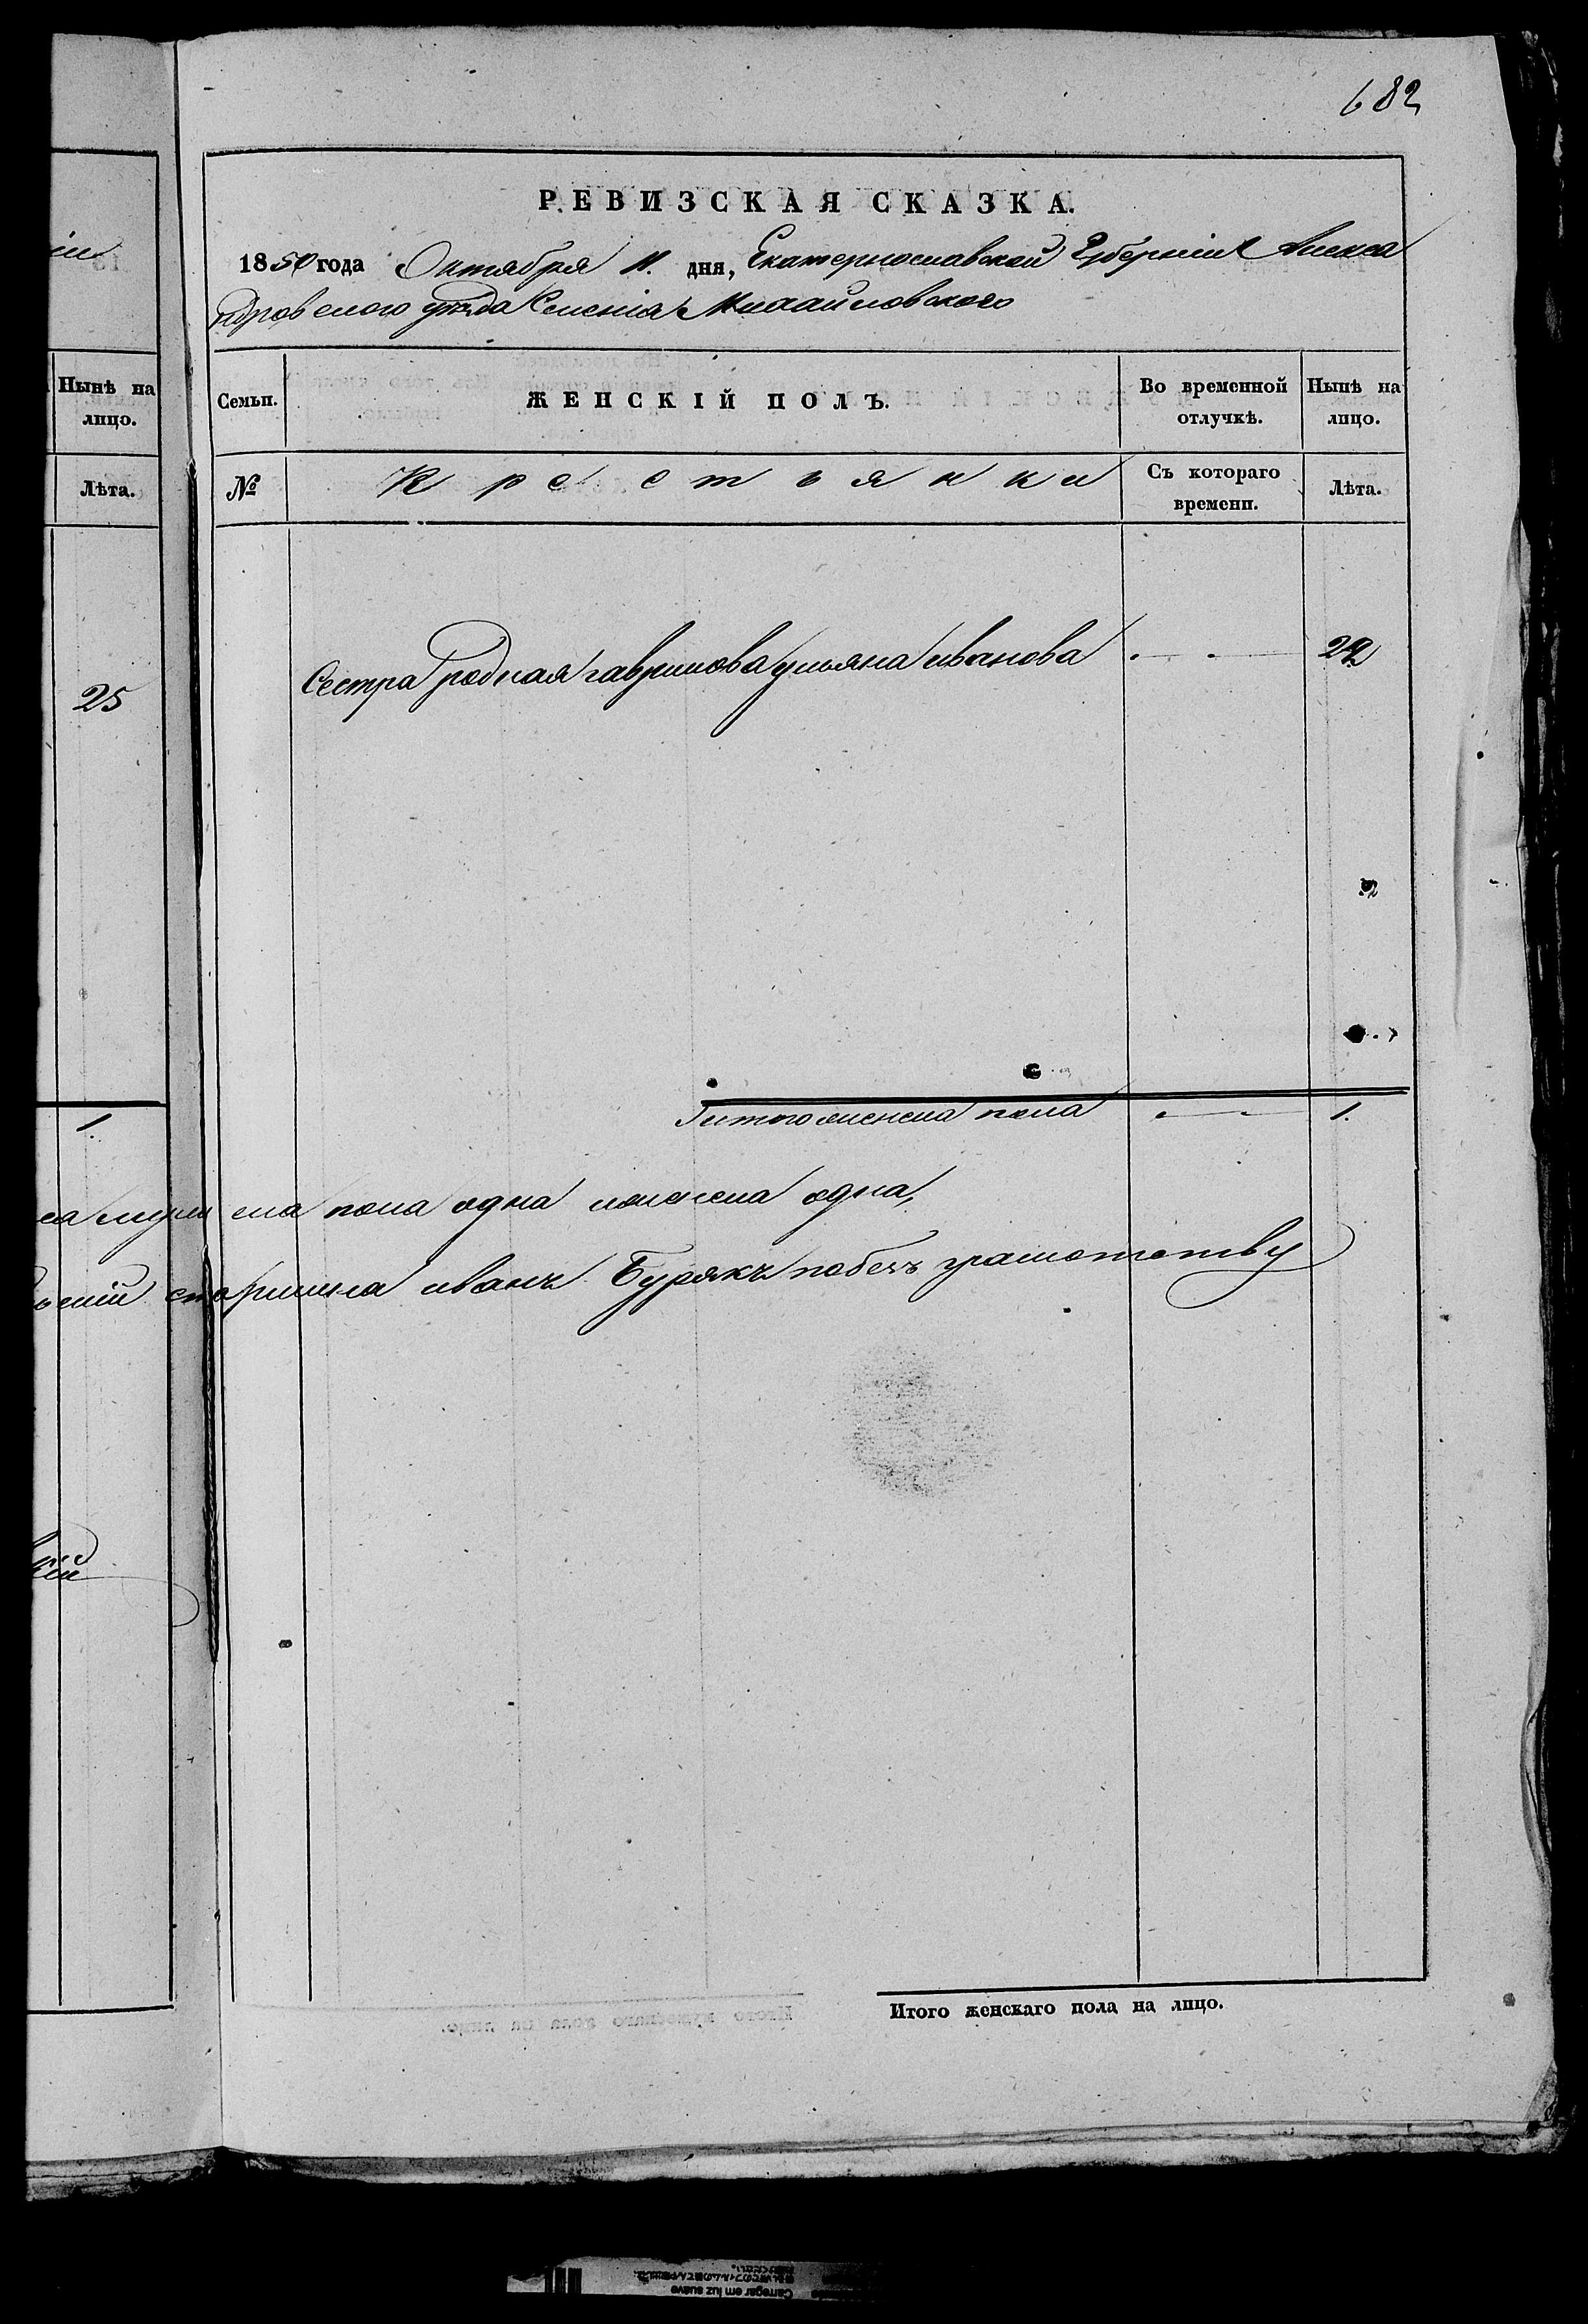 682
РЕВИЗСКАЯ СКАЗКА.
1850 года Октября 11. дня, Екатернославской Губерніи Алекса
ндровского уѣзда Селенія Михайловского
Нынѣ на лицо.
Лѣта.
25
1.
Семьи.
ЖЕНСКІЙ ПОЛЪ.
Во временной отлучкѣ.
Нынѣ на лицо.
№
Крестьянки
Съ котораго времени.
Лѣта.
Сестра родная гаврилова ульяна иванова
22
Итого женска пола
1.
ска пола одна
одна,
старшина иванъ Бурякъ
Итого женскаго пола на лицо.
Carregar em luz suave